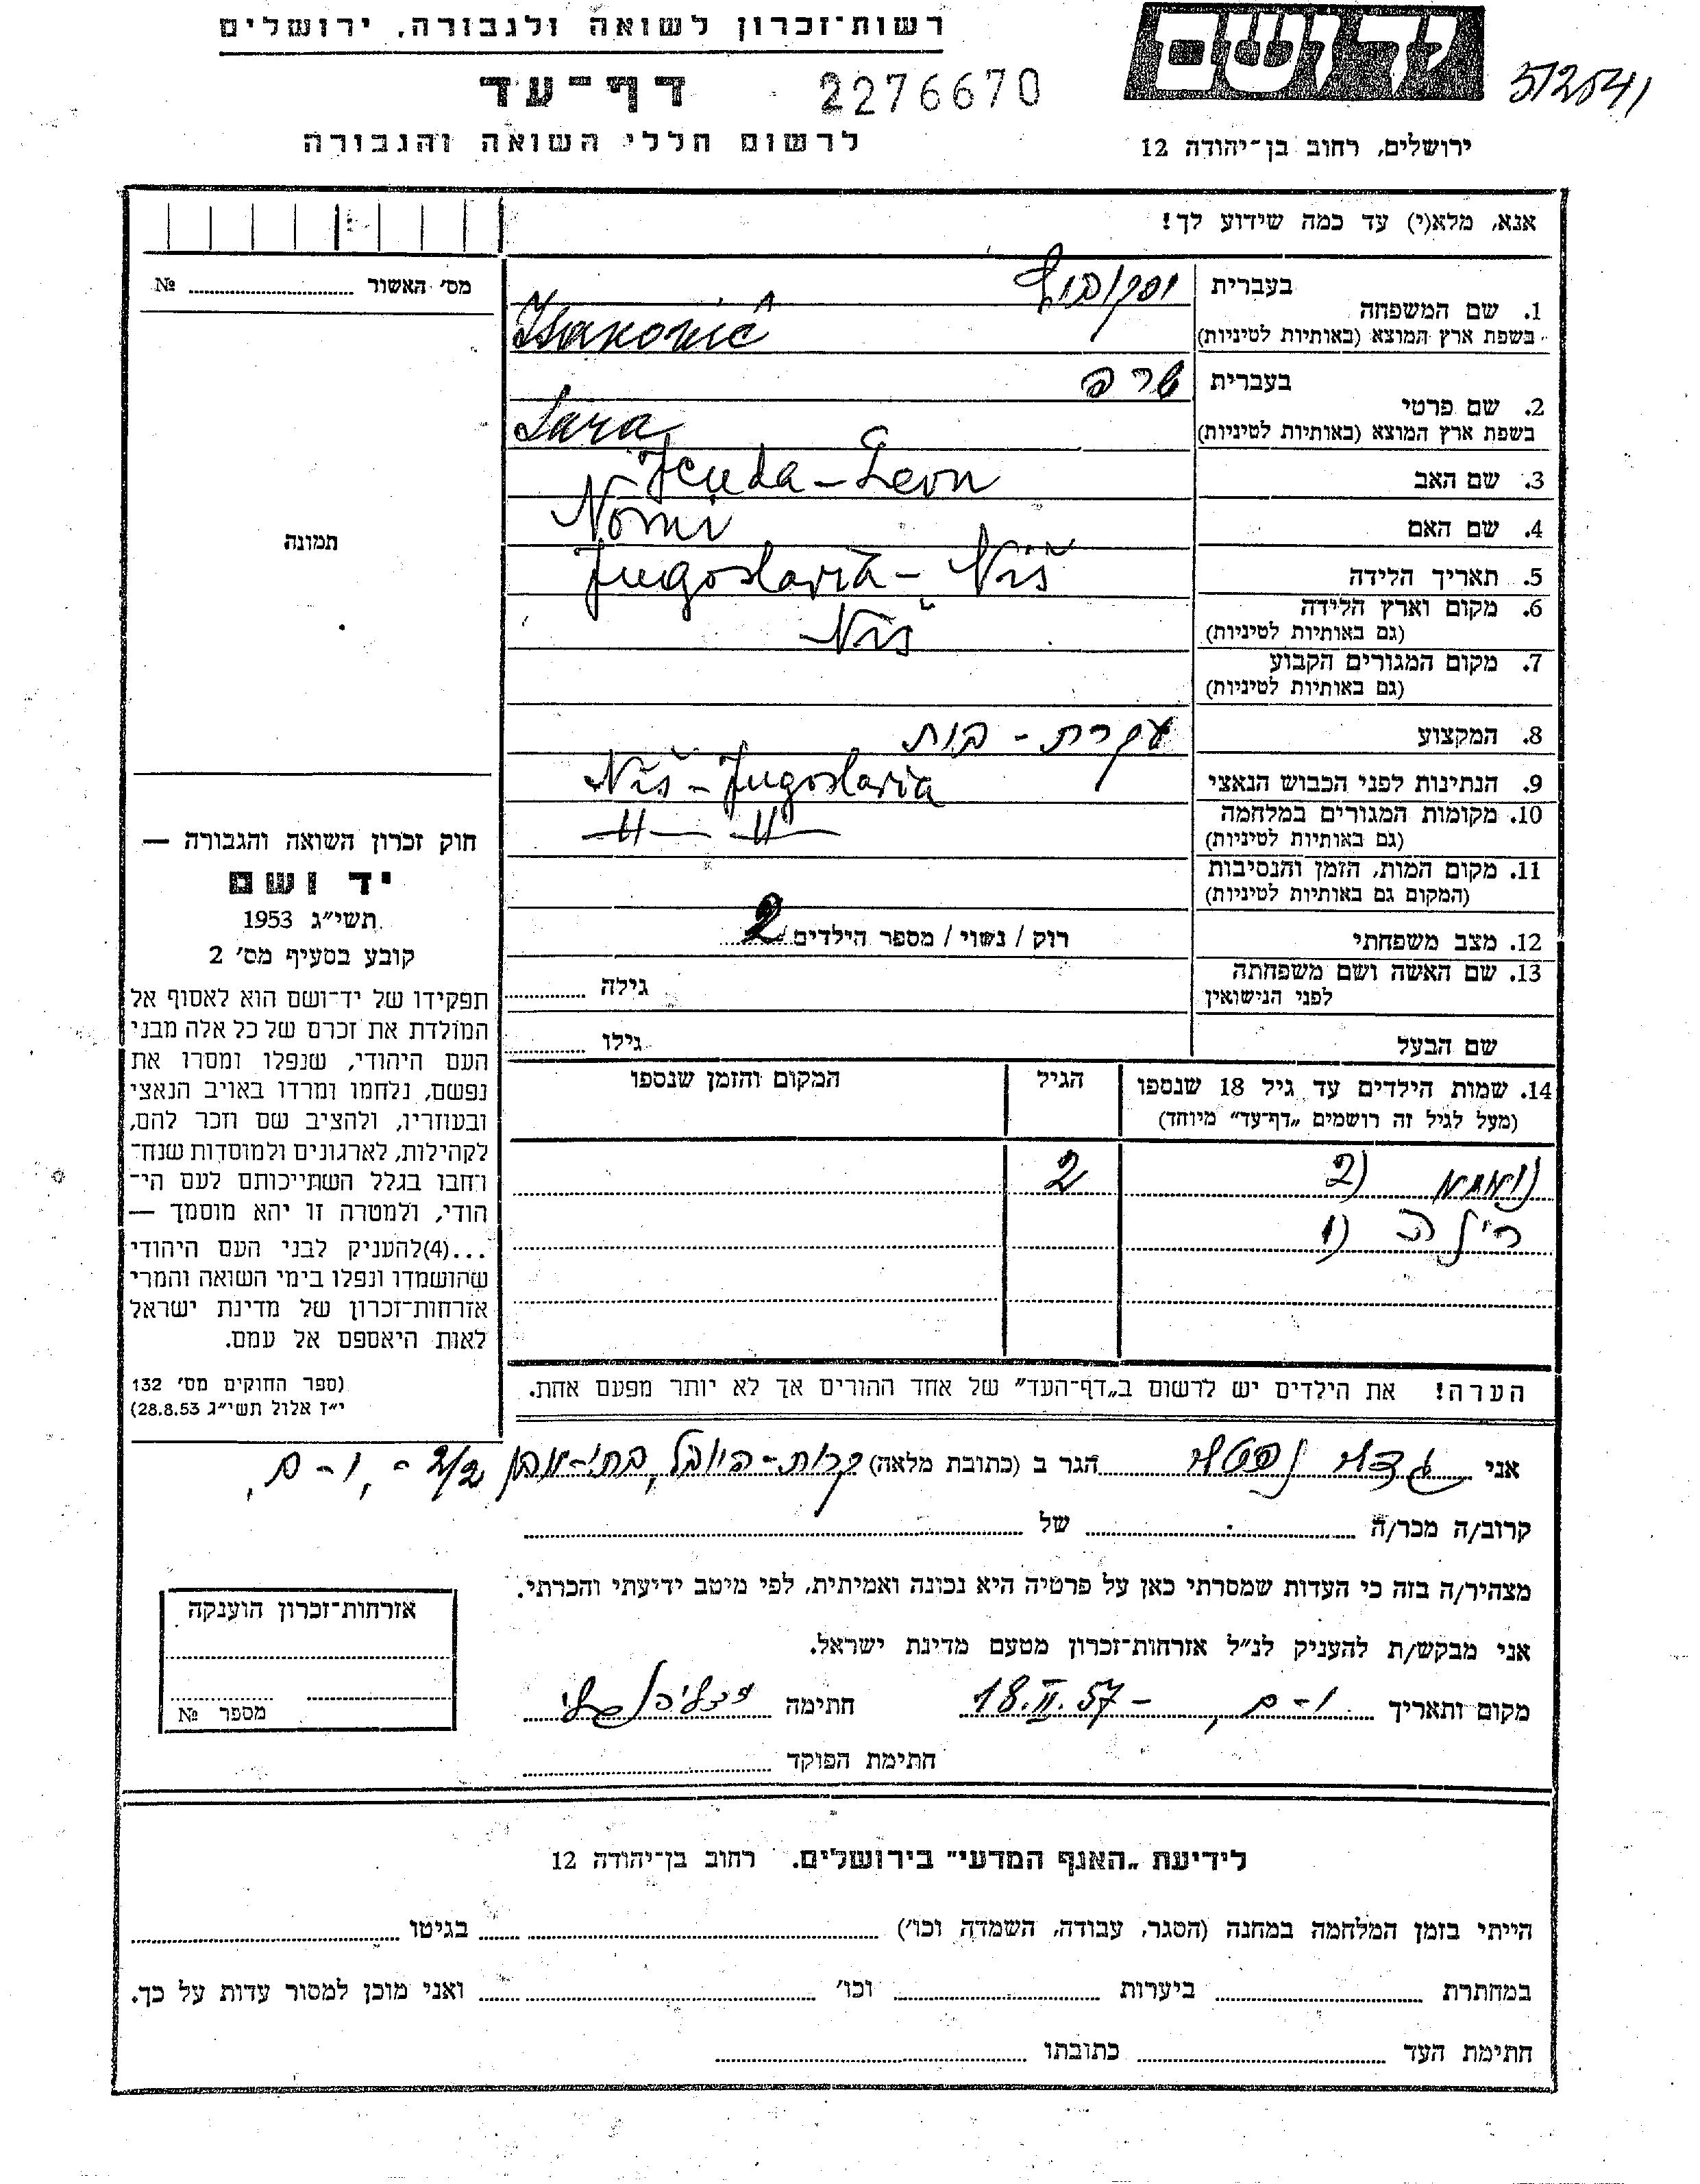 רשות־זכרון לשואה ולגבורה, ירושלים
דף־עד 2276670
לרשום חללי השואה והגבורה
ידושם
ירושלים, רחוב בן־יהודה 12
אנא, מלא(י) עד כמה שידוע לך!
מס׳ האשור № 
תמונה
חוק זכרון השואה והגבורה —
יד ושם
תשי״ג 1953
קובע בסעיף מס׳ 2
תפקידו של יד־ושם הוא לאסוף אל
המולדת את זכרם של כל אלה מבני
העם היהודי, שנפלו ומסרו את
נפשם, נלחמו ומרדו באויב הנאצי
ובעוזריו, ולהציב שם וזכר להם,
לקהילות, לארגונים ולמוסדות שנח־
רחבו בגלל השתייכותם לעם הי־
הודי, ולמטרה זו יהא מוסמך —
...(4)להעניק לבני העם היהודי
שהושמדו ונפלו בימי השואה והמרי
אזרחות־זכרון של מדינת ישראל
לאות היאספם אל עמם.
(ספר החוקים מס׳ 132
י״ז אלול תשי״ג 28.8.53)
1. שם המשפחה
בעברית
בשפת ארץ המוצא (באותיות לטיניות) Isaković
2. שם פרטי
בעברית שרה
בשפת ארץ המוצא (באותיות לטיניות) Sara
3. שם האב Jeuda - Leon
4. שם האם Nomi
5. תאריך הלידה
Jugoslavia - Niš
6. מקום וארץ הלידה
(גם באותיות לטיניות) Niš
7. מקום המגורים הקבוע
(גם באותיות לטיניות)
8. המקצוע עקרת - בית
9. הנתינות לפני הכבוש הנאצי Niš - Jugoslavia
10. מקומות המגורים במלחמה
(גם באותיות לטיניות) —"— —"—
11. מקום המות, הזמן והנסיבות
(המקום גם באותיות לטיניות)
12. מצב משפחתי רוק / נשוי / מספר הילדים 2
13. שם האשה ושם משפחתה
לפני הנישואין גילה
שם הבעל גילו
14. שמות הילדים עד גיל 18 שנספו
(מעל לגיל זה רושמים „דף־עד״ מיוחד)
הגיל
המקום והזמן שנספו
2) 2
1)
הערה! את הילדים יש לרשום ב„דף־העד״ של אחד ההורים אך לא יותר מפעם אחת.
אני הגר ב (כתובת מלאה) קרית-היובל,
קרוב/ה מכר/ה של
מצהיר/ה בזה כי העדות שמסרתי כאן על פרטיה היא נכונה ואמיתית, לפי מיטב ידיעתי והכרתי.
אני מבקש/ת להעניק לנ״ל אזרחות־זכרון מטעם מדינת ישראל.
מקום ותאריך 18.II.57 חתימה
חתימת הפוקד
אזרחות־זכרון הוענקה
מספר №
לידיעת „האגף המדעי״ בירושלים. רחוב בן־יהודה 12
הייתי בזמן המלחמה במחנה (הסגר, עבודה, השמדה וכו׳) בגיטו
במחתרת ביערות וכו׳ ואני מוכן למסור עדות על כך.
חתימת העד כתובתו